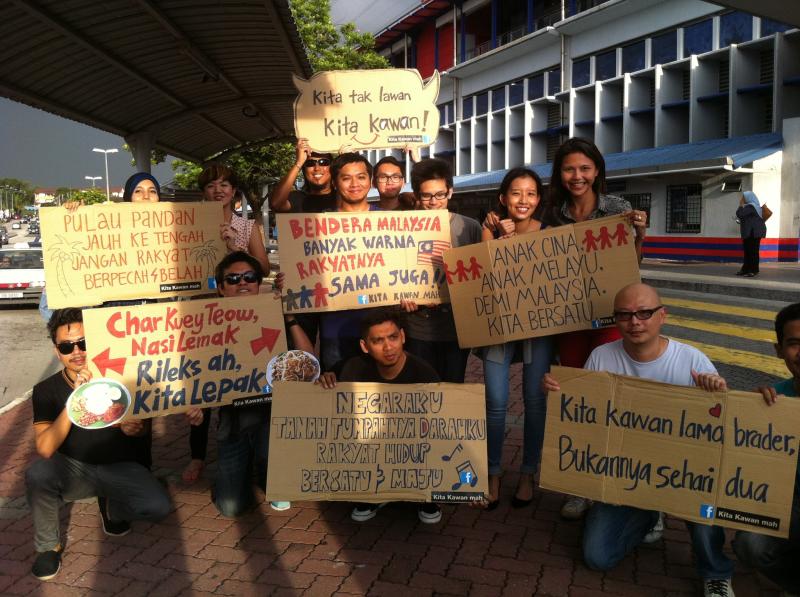 Kita tak lawan
Kita kawan!
Kita Kawan mah
PULAU PANDAN
JAUH KE TENGAH
JANGAN RAKYAT
BERPECAH BELAH
Kita Kawan mah
BENDERA MALAYSIA
BANYAK WARNA
RAKYATNYA
SAMA JUGA!
f KITA KAWAN MAH
ANAK CINA,
ANAK MELAYU.
DEMI MALAYSIA.
KITA BERSATU
f
Char Kuey Teow,
Nasi Lemak
Rileks ah,
Kita Lepak
NEGARAKU
TANAH TUMPAHNYA DARAHKU
RAKYAT HIDUP
BERSATU & MAJU
f
Kita Kawan mah
Kita kawan lama brader,
Bukannya sehari dua
f Kita Kawan mah